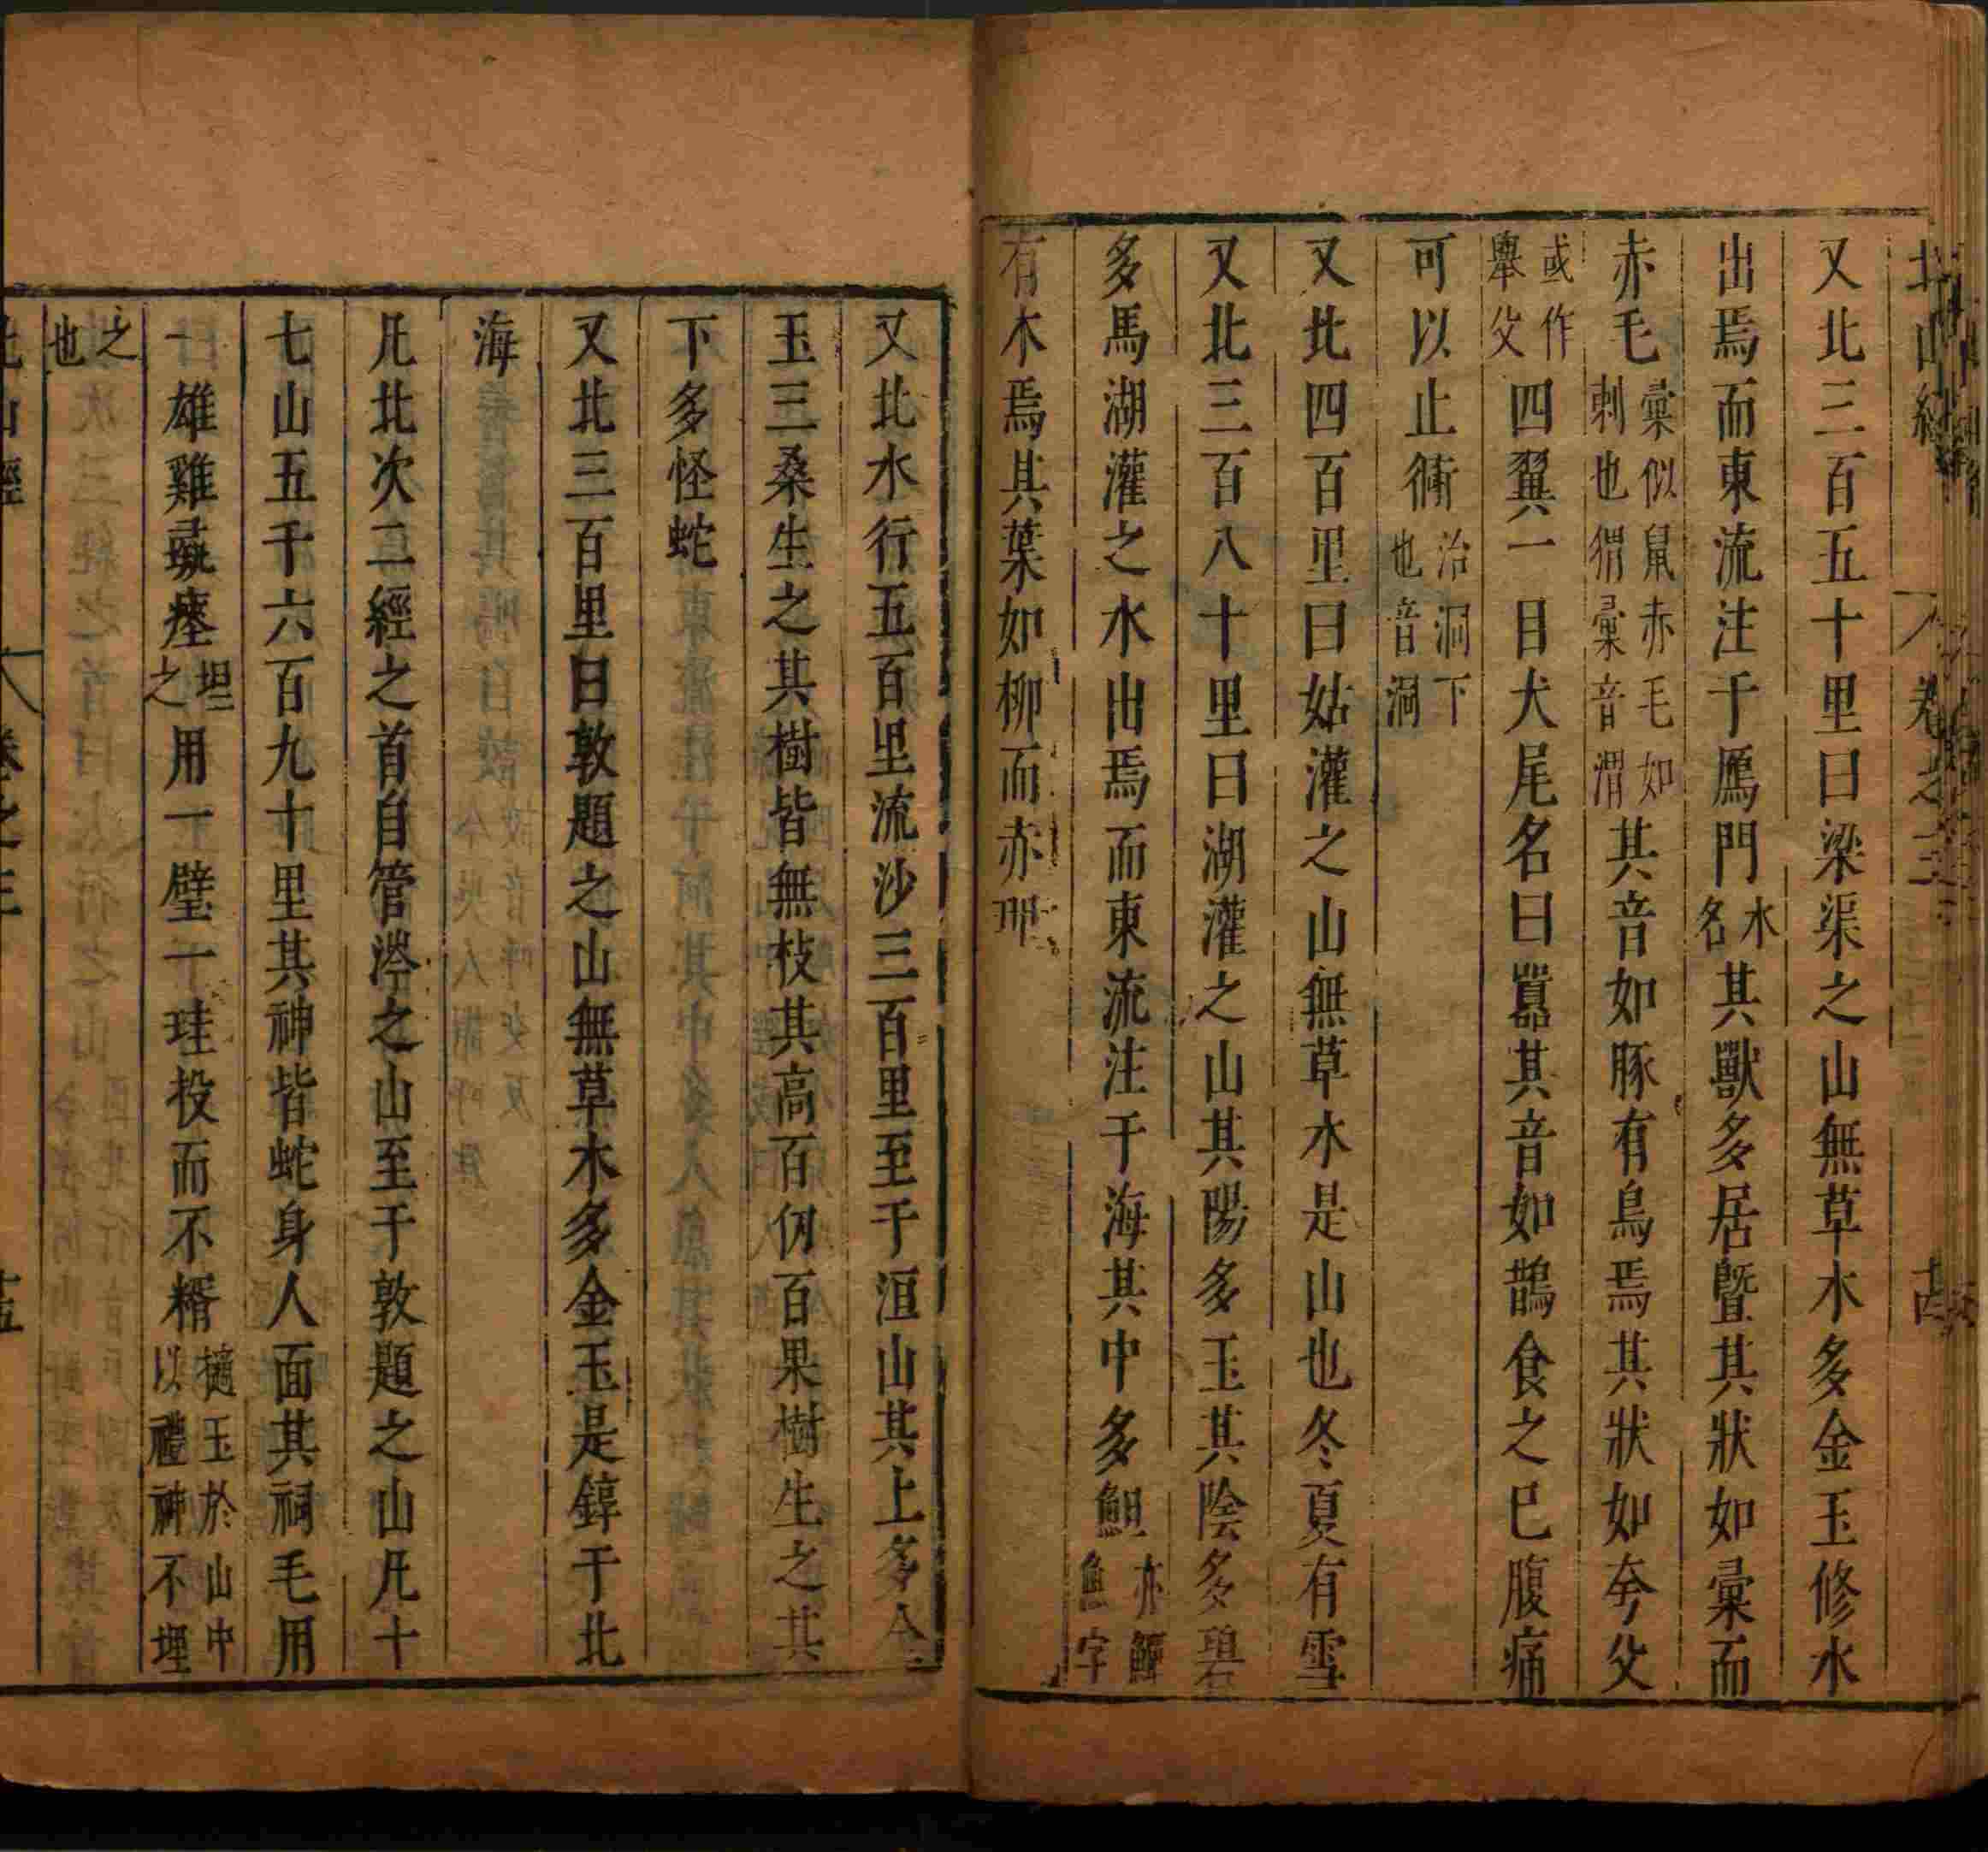 北山經 卷之三 十四
又北三百五十里曰梁渠之山無草木多金玉修水
出焉而東流注于鴈門水名其獸多居暨其狀如彙而
赤毛彙似鼠赤毛如刺也猬彙音渭其音如豚有鳥焉其狀如夸父
或作舉父四翼一目犬尾名曰囂其音如鵲食之已腹痛
可以止衕治洞下也音洞
又北四百里曰姑灌之山無草木是山也冬夏有雪
又北三百八十里曰湖灌之山其陽多玉其陰多碧
多馬湖灌之水出焉而東流注于海其中多䱇亦鱓魚字
有木焉其葉如柳而赤理
又北水行五百里流沙三百里至于洹山其上多金
玉三桑生之其樹皆無枝其高百仞百果樹生之其
下多怪蛇
又北三百里曰敦題之山無草木多金玉是錞于北
海
凡北次二經之首自管涔之山至于敦題之山凡十
七山五千六百九十里其神皆蛇身人面其祠毛用
一雄雞彘瘞坦之用一璧一珪投而不糈擿玉於山中以禮神不埋
之也
北山經 卷之三 十五